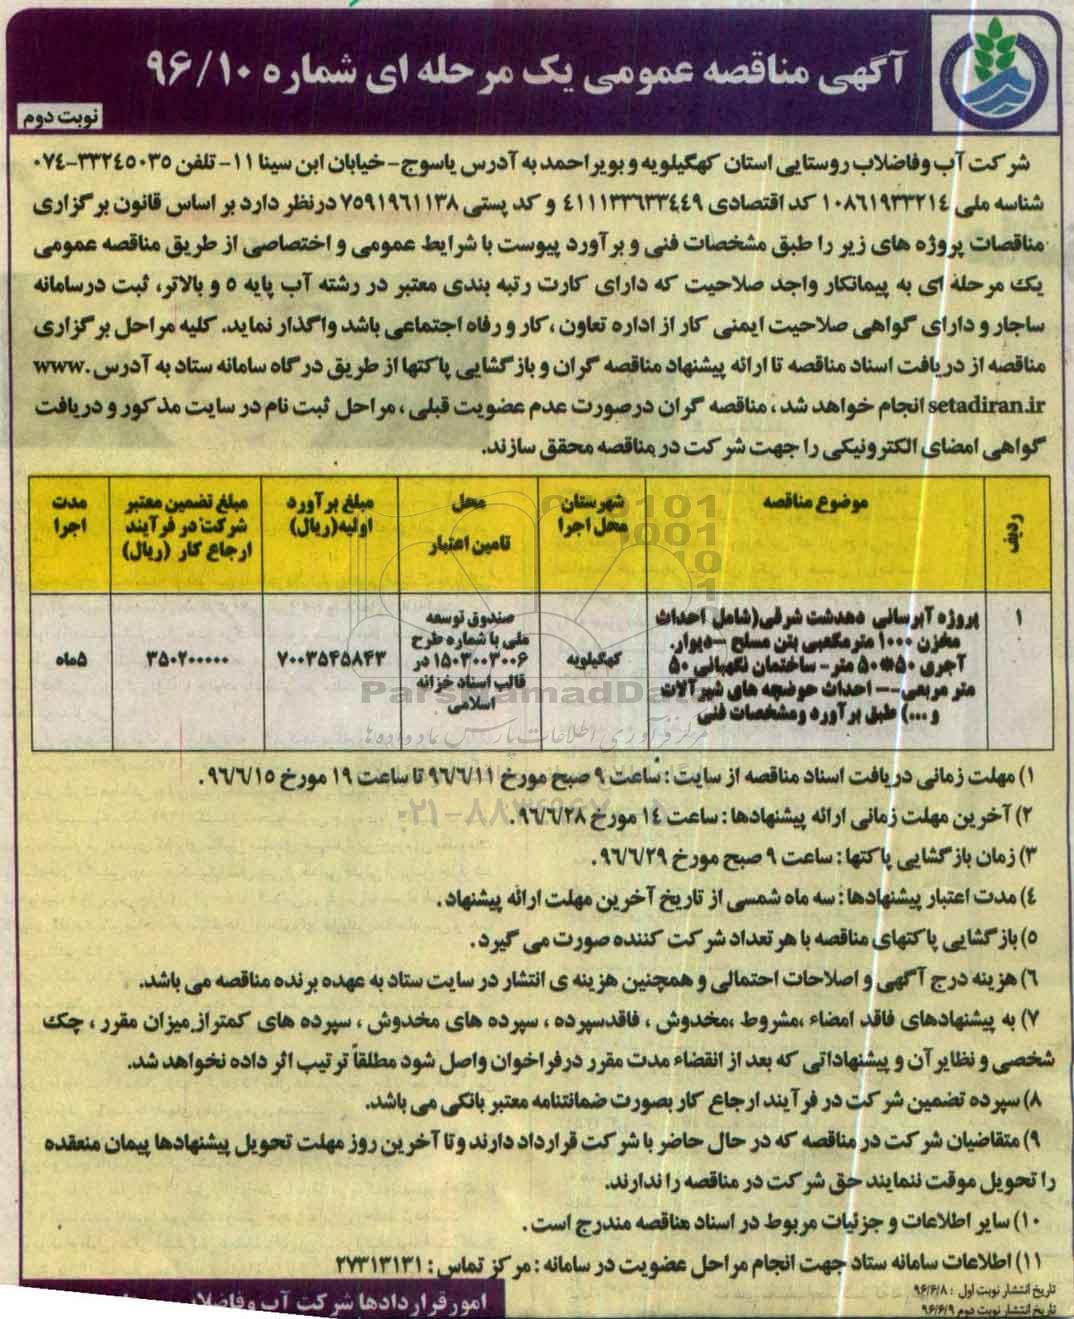 آگهی مناقصه عمومی یک مرحله ای شماره ۹۶/۱۰
نوبت دوم
شرکت آب وفاضلاب روستایی استان کهگیلویه و بویراحمد به آدرس یاسوج- خیابان ابن سینا ۱۱- تلفن ۳۳۲۴۵۰۳۵-۰۷۴
شناسه ملی ۱۰۸۶۱۹۳۳۲۱۴ کد اقتصادی ۴۱۱۱۳۳۶۳۳۴۴۹ و کد پستی ۷۵۹۱۹۶۱۱۳۸ درنظر دارد بر اساس قانون برگزاری
مناقصات پروژه های زیر را طبق مشخصات فنی و برآورد پیوست با شرایط عمومی و اختصاصی از طریق مناقصه عمومی
یک مرحله ای به پیمانکار واجد صلاحیت که دارای کارت رتبه بندی معتبر در رشته آب پایه ۵ و بالاتر، ثبت درسامانه
ساجار و دارای گواهی صلاحیت ایمنی کار از اداره تعاون ،کار و رفاه اجتماعی باشد واگذار نماید. کلیه مراحل برگزاری
مناقصه از دریافت اسناد مناقصه تا ارائه پیشنهاد مناقصه گران و بازگشایی پاکتها از طریق درگاه سامانه ستاد به آدرس www.
setadiran.ir انجام خواهد شد ، مناقصه گران درصورت عدم عضویت قبلی ، مراحل ثبت نام در سایت مذکور و دریافت
گواهی امضای الکترونیکی را جهت شرکت در مناقصه محقق سازند.
ردیف
موضوع مناقصه
شهرستان
محل اجرا
محل
تامین اعتبار
مبلغ برآورد
اولیه(ریال)
مبلغ تضمین معتبر
شرکت در فرآیند
ارجاع کار (ریال)
مدت
اجرا
۱
پروژه آبرسانی دهدشت شرقی(شامل احداث
مخزن ۱۰۰۰ مترمکعبی بتن مسلح –دیوار
آجری ۵۰*۵۰ متر- ساختمان نگهبانی ۵۰
متر مربعی-– احداث حوضچه های شیرآلات
و ...) طبق برآورد ومشخصات فنی
کهگیلویه
صندوق توسعه
ملی با شماره طرح
۱۵۰۳۰۰۳۰۰۶ در
قالب اسناد خزانه
اسلامی
۷۰۰۳۵۴۵۸۴۳
۳۵۰۲۰۰۰۰۰
۵ماه
ParsNamadData
مرکز فرآوری اطلاعات پارس نماد داده ها
۱) مهلت زمانی دریافت اسناد مناقصه از سایت : ساعت ۹ صبح مورخ ۹۶/۶/۱۱ تا ساعت ۱۹ مورخ ۹۶/۶/۱۵.
۲) آخرین مهلت زمانی ارائه پیشنهادها : ساعت ۱۴ مورخ ۹۶/۶/۲۸.
۳) زمان بازگشایی پاکتها : ساعت ۹ صبح مورخ ۹۶/۶/۲۹.
۴) مدت اعتبار پیشنهادها : سه ماه شمسی از تاریخ آخرین مهلت ارائه پیشنهاد .
۵) بازگشایی پاکتهای مناقصه با هر تعداد شرکت کننده صورت می گیرد .
۶) هزینه درج آگهی و اصلاحات احتمالی و همچنین هزینه ی انتشار در سایت ستاد به عهده برنده مناقصه می باشد.
۷) به پیشنهادهای فاقد امضاء ،مشروط ،مخدوش ، فاقدسپرده ، سپرده های مخدوش ، سپرده های کمتراز میزان مقرر ، چک
شخصی و نظایرآن و پیشنهاداتی که بعد از انقضاء مدت مقرر درفراخوان واصل شود مطلقاً ترتیب اثر داده نخواهد شد.
۸) سپرده تضمین شرکت در فرآیند ارجاع کار بصورت ضمانتنامه معتبر بانکی می باشد.
۹) متقاضیان شرکت در مناقصه که در حال حاضر با شرکت قرارداد دارند وتا آخرین روز مهلت تحویل پیشنهادها پیمان منعقده
را تحویل موقت ننمایند حق شرکت در مناقصه را ندارند.
۱۰) سایر اطلاعات و جزئیات مربوط در اسناد مناقصه مندرج است .
۱۱) اطلاعات سامانه ستاد جهت انجام مراحل عضویت در سامانه : مرکز تماس : ۲۷۳۱۳۱۳۱
تاریخ انتشار نوبت اول : ۹۶/۶/۸
تاریخ انتشار نوبت دوم ۹۶/۶/۹
امورقراردادها شرکت آب وفاضلاب